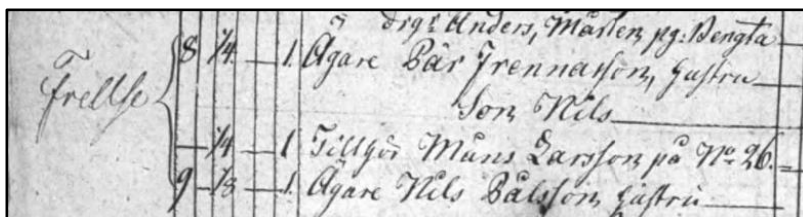 drgr Anders, Mårten, pg: Bengta
Frellse 8 1/4 1. Ägare Pär Trennasson, hustru
Son Nils
1/4 1 Tillhör Måns Larsson på No 26.
9 1/8 1. Ägare Nils Pålsson, hustru